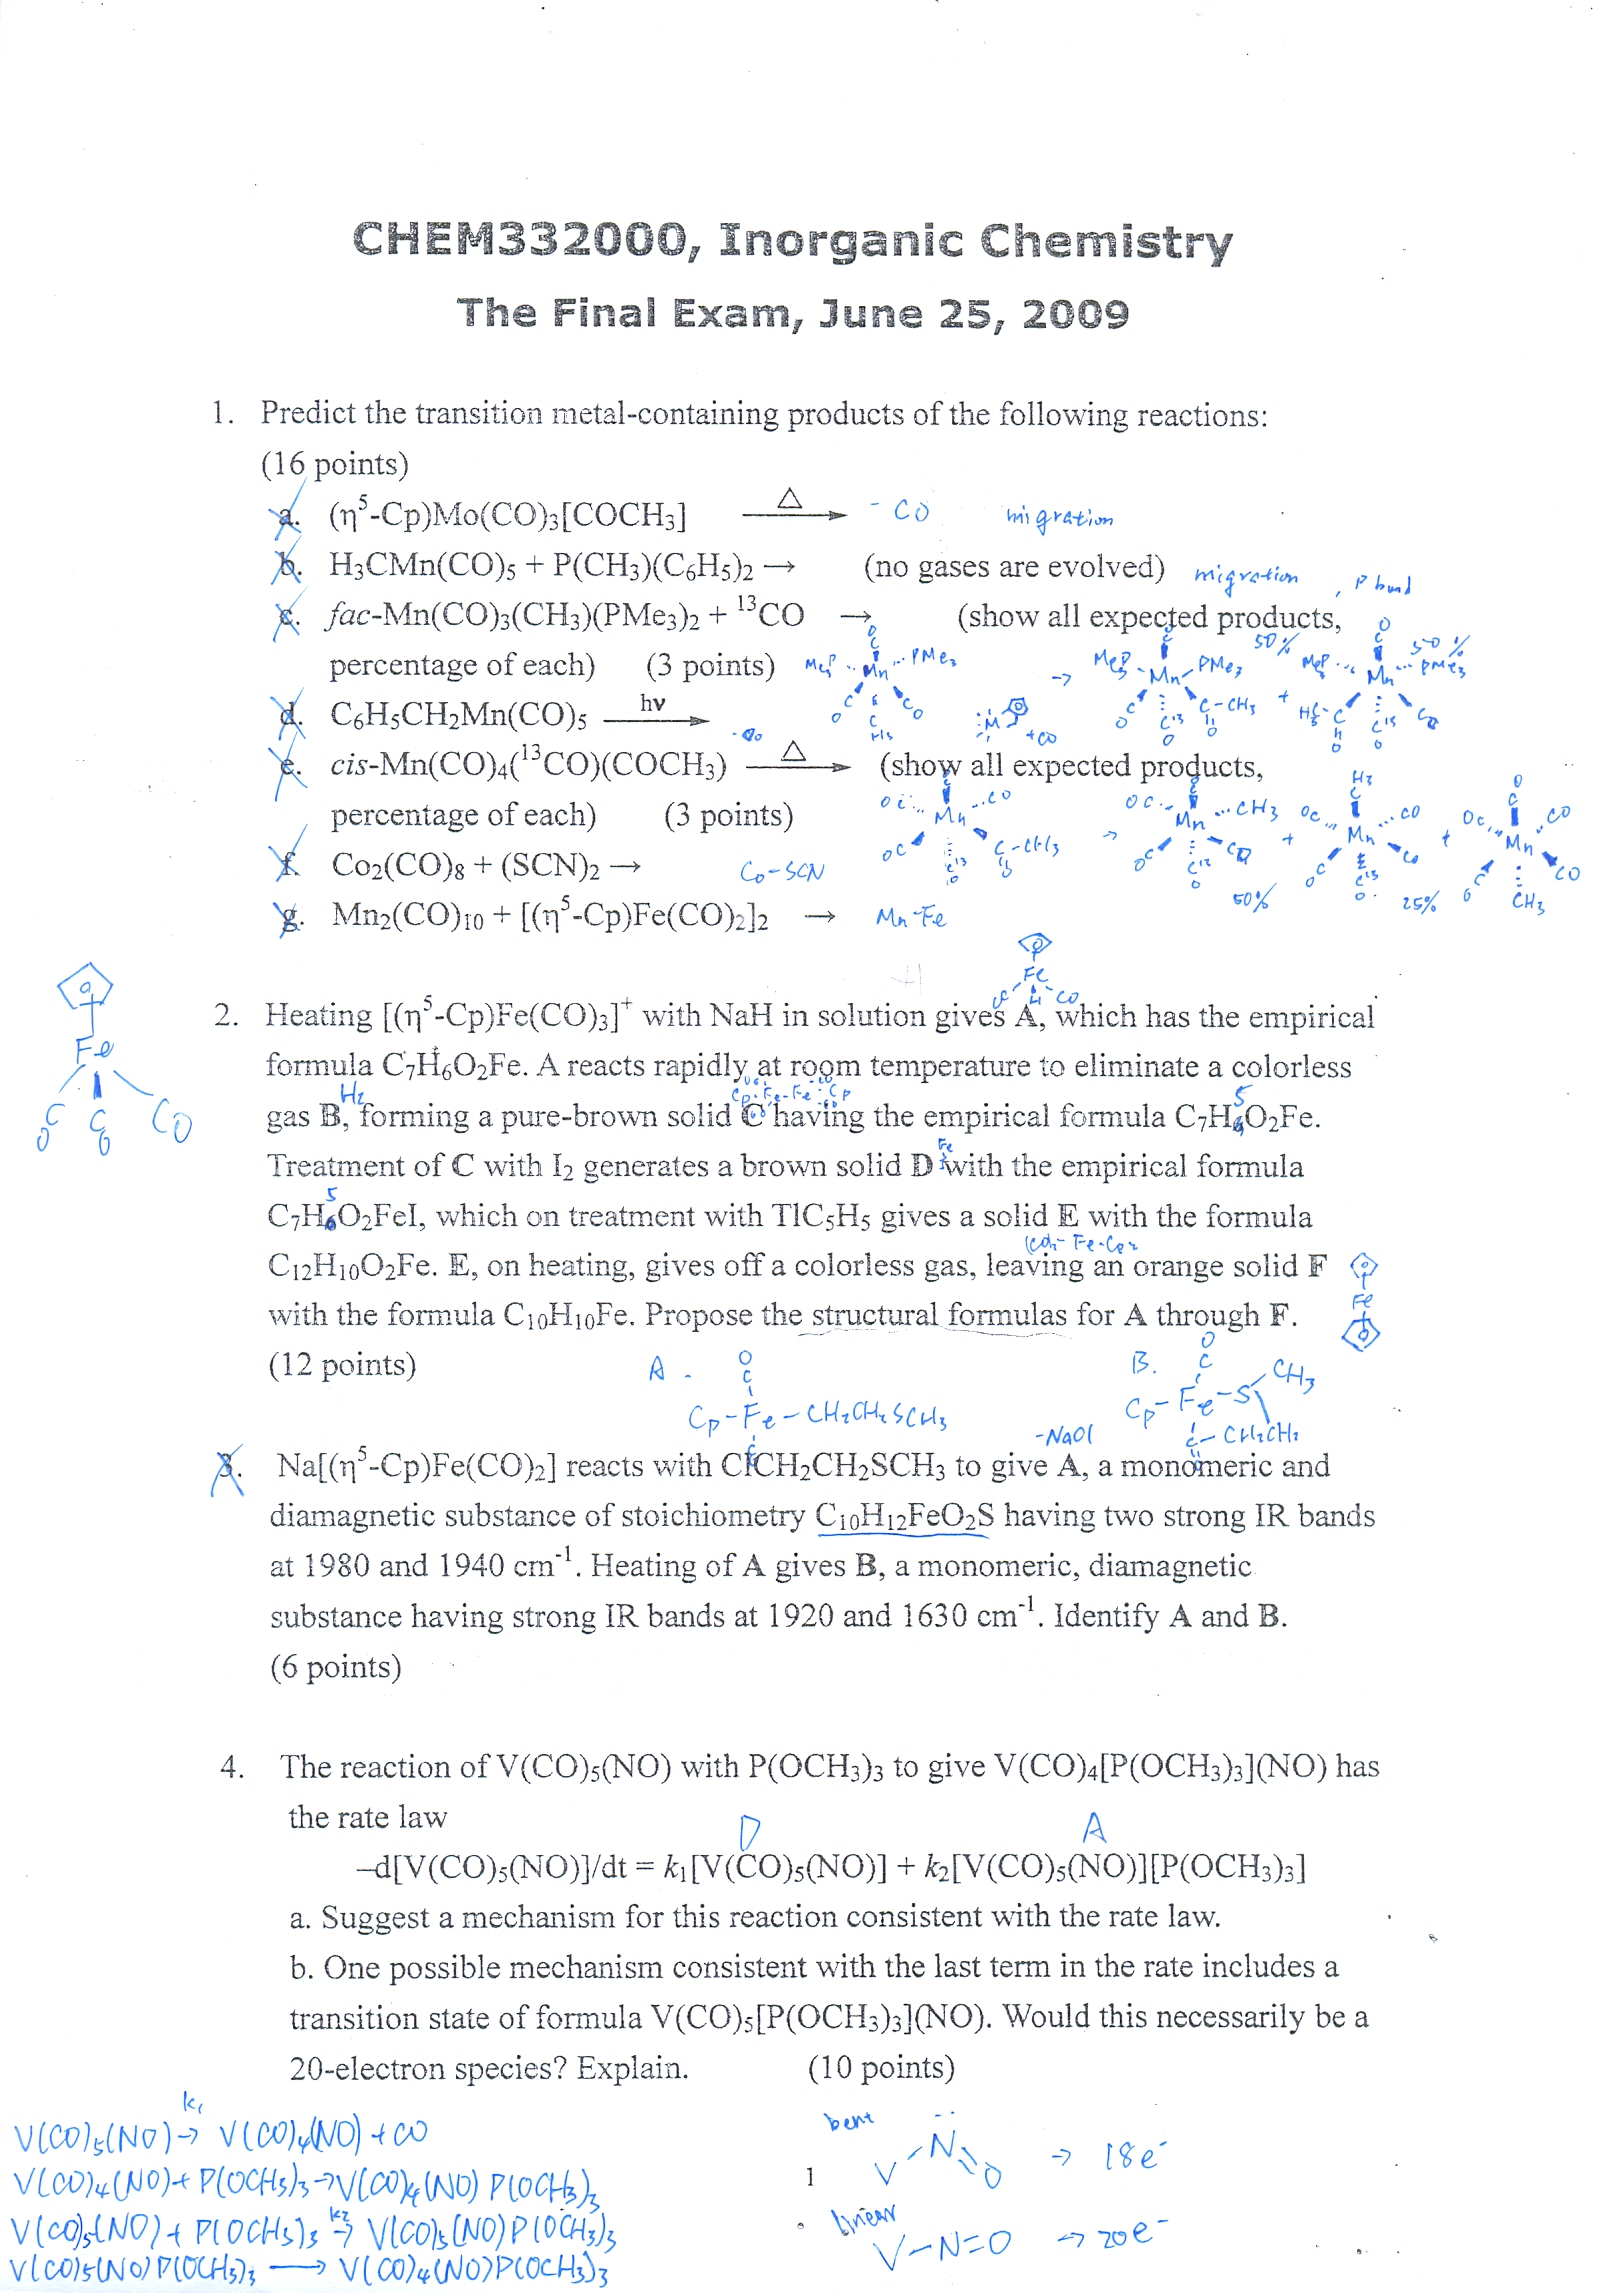 CHEM332000, Inorganic Chemistry
The Final Exam, June 25, 2009
1. Predict the transition metal-containing products of the following reactions:
(16 points)
a. (η⁵-Cp)Mo(CO)₃[COCH₃] △ → - CO migration
b. H₃CMn(CO)₅ + P(CH₃)(C₆H₅)₂ → (no gases are evolved) migration, P bond
c. fac-Mn(CO)₃(CH₃)(PMe₃)₂ + ¹³CO → (show all expected products,
percentage of each) (3 points)
50% 50%
d. C₆H₅CH₂Mn(CO)₅ hν →
+CO
e. cis-Mn(CO)₄(¹³CO)(COCH₃) △ → (show all expected products,
percentage of each) (3 points)
50% 25%
f. Co₂(CO)₈ + (SCN)₂ → Co-SCN
g. Mn₂(CO)₁₀ + [(η⁵-Cp)Fe(CO)₂]₂ → Mn-Fe
2. Heating [(η⁵-Cp)Fe(CO)₃]⁺ with NaH in solution gives A, which has the empirical
formula C₇H₆O₂Fe. A reacts rapidly at room temperature to eliminate a colorless
H₂
gas B, forming a pure-brown solid C having the empirical formula C₇H₅O₂Fe.
Treatment of C with I₂ generates a brown solid D with the empirical formula
C₇H₅O₂FeI, which on treatment with TlC₅H₅ gives a solid E with the formula
C₁₂H₁₀O₂Fe. E, on heating, gives off a colorless gas, leaving an orange solid F
with the formula C₁₀H₁₀Fe. Propose the structural formulas for A through F.
(12 points)
A. Cp-Fe-CH₂CH₂SCH₃
B. Cp-Fe-S CH₃
CH₂CH₂
3. Na[(η⁵-Cp)Fe(CO)₂] reacts with ClCH₂CH₂SCH₃ to give A, a monomeric and
diamagnetic substance of stoichiometry C₁₀H₁₂FeO₂S having two strong IR bands
at 1980 and 1940 cm⁻¹. Heating of A gives B, a monomeric, diamagnetic
substance having strong IR bands at 1920 and 1630 cm⁻¹. Identify A and B.
(6 points)
4. The reaction of V(CO)₅(NO) with P(OCH₃)₃ to give V(CO)₄[P(OCH₃)₃](NO) has
the rate law
D A
–d[V(CO)₅(NO)]/dt = k₁[V(CO)₅(NO)] + k₂[V(CO)₅(NO)][P(OCH₃)₃]
a. Suggest a mechanism for this reaction consistent with the rate law.
b. One possible mechanism consistent with the last term in the rate includes a
transition state of formula V(CO)₅[P(OCH₃)₃](NO). Would this necessarily be a
20-electron species? Explain. (10 points)
k₁
V(CO)₅(NO) → V(CO)₄(NO) + CO
V(CO)₄(NO) + P(OCH₃)₃ → V(CO)₄(NO) P(OCH₃)₃
k₂
V(CO)₅(NO) + P(OCH₃)₃ → V(CO)₅(NO)P(OCH₃)₃
V(CO)₅(NO)P(OCH₃)₃ → V(CO)₄(NO)P(OCH₃)₃
bent
V-N=O → 18e⁻
linear
V-N=O → 20e⁻
1